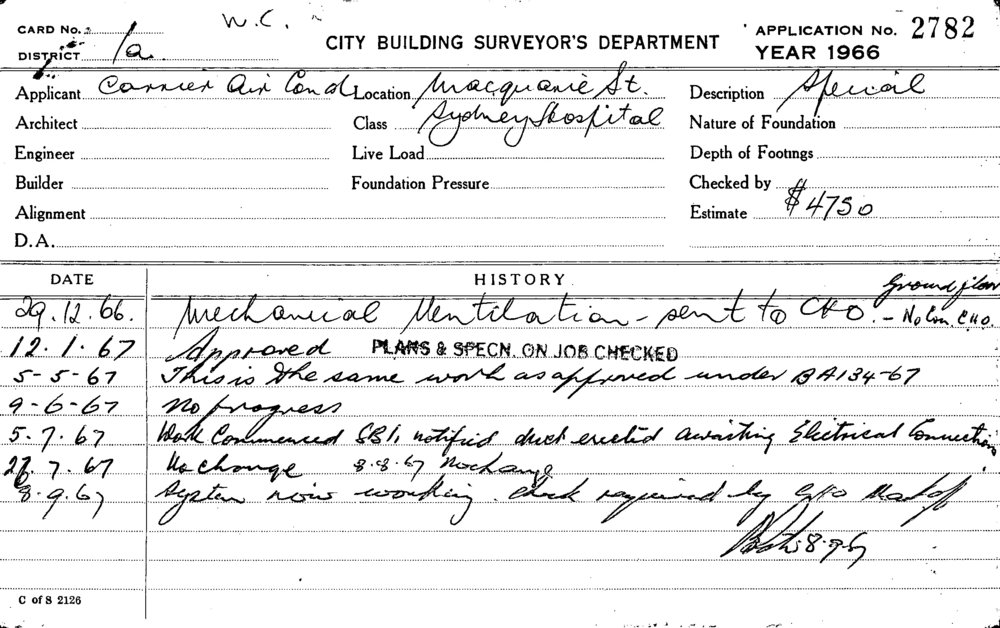 W.C.
CARD No.
CITY BUILDING SURVEYOR'S DEPARTMENT
APPLICATION No. 2782
DISTRICT 1a
YEAR 1966
Applicant Carrier Air Cond Location Macquarie St. Description Special
Architect Class Sydney Hospital Nature of Foundation
Engineer Live Load Depth of Footings
Builder Foundation Pressure Checked by
Alignment Estimate $4750
D.A.
DATE HISTORY
Ground floor
29.12.66. Mechanical Ventilation - sent to CHO. - No Con. CHO.
12.1.67 Approved PLANS & SPECN. ON JOB CHECKED
5-5-67 This is the same work as approved under BA134-67
9-6-67 No progress
5.7.67 Work Commenced SBI, notified duct erected awaiting Electrical Connection
.7.67 No change 8.8.67 No change
8.9.67 System now working. check required by CHO
8.9.67
C of S 2126